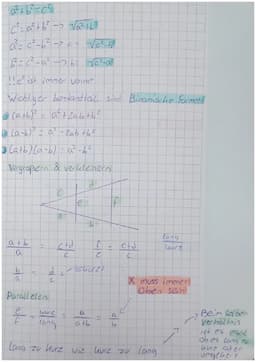 a²+b²=c²
c²=a²+b² → √a²+b²
a²=c²-b² → √c²-b²
b²=c²-a² → b= √c²-a²
!!c² ist immer vorne
Wichtiger bestandteil sind Binomische Formeln
(a+b)² = a²+2ab+b²
(a-b)² = a²-2ab+b²
(a+b)(a-b) = a²-b²
Vergrößern & verkleinern
d
c
e
f
a
b
a+b/a = c+d/c f/e = c+d/c lang/kurz
b/a = d/c
X muss immer
Oben sein!
Parallelen
e/f = kurz/lang = a/a+b =
Beim
verhältnis
ist es egal
ob es lang zu
kurz oder
lang zu kurz wie kurz zu lang